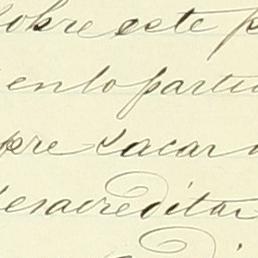 sobre este p
en lo partic
pre sacar
desacreditar